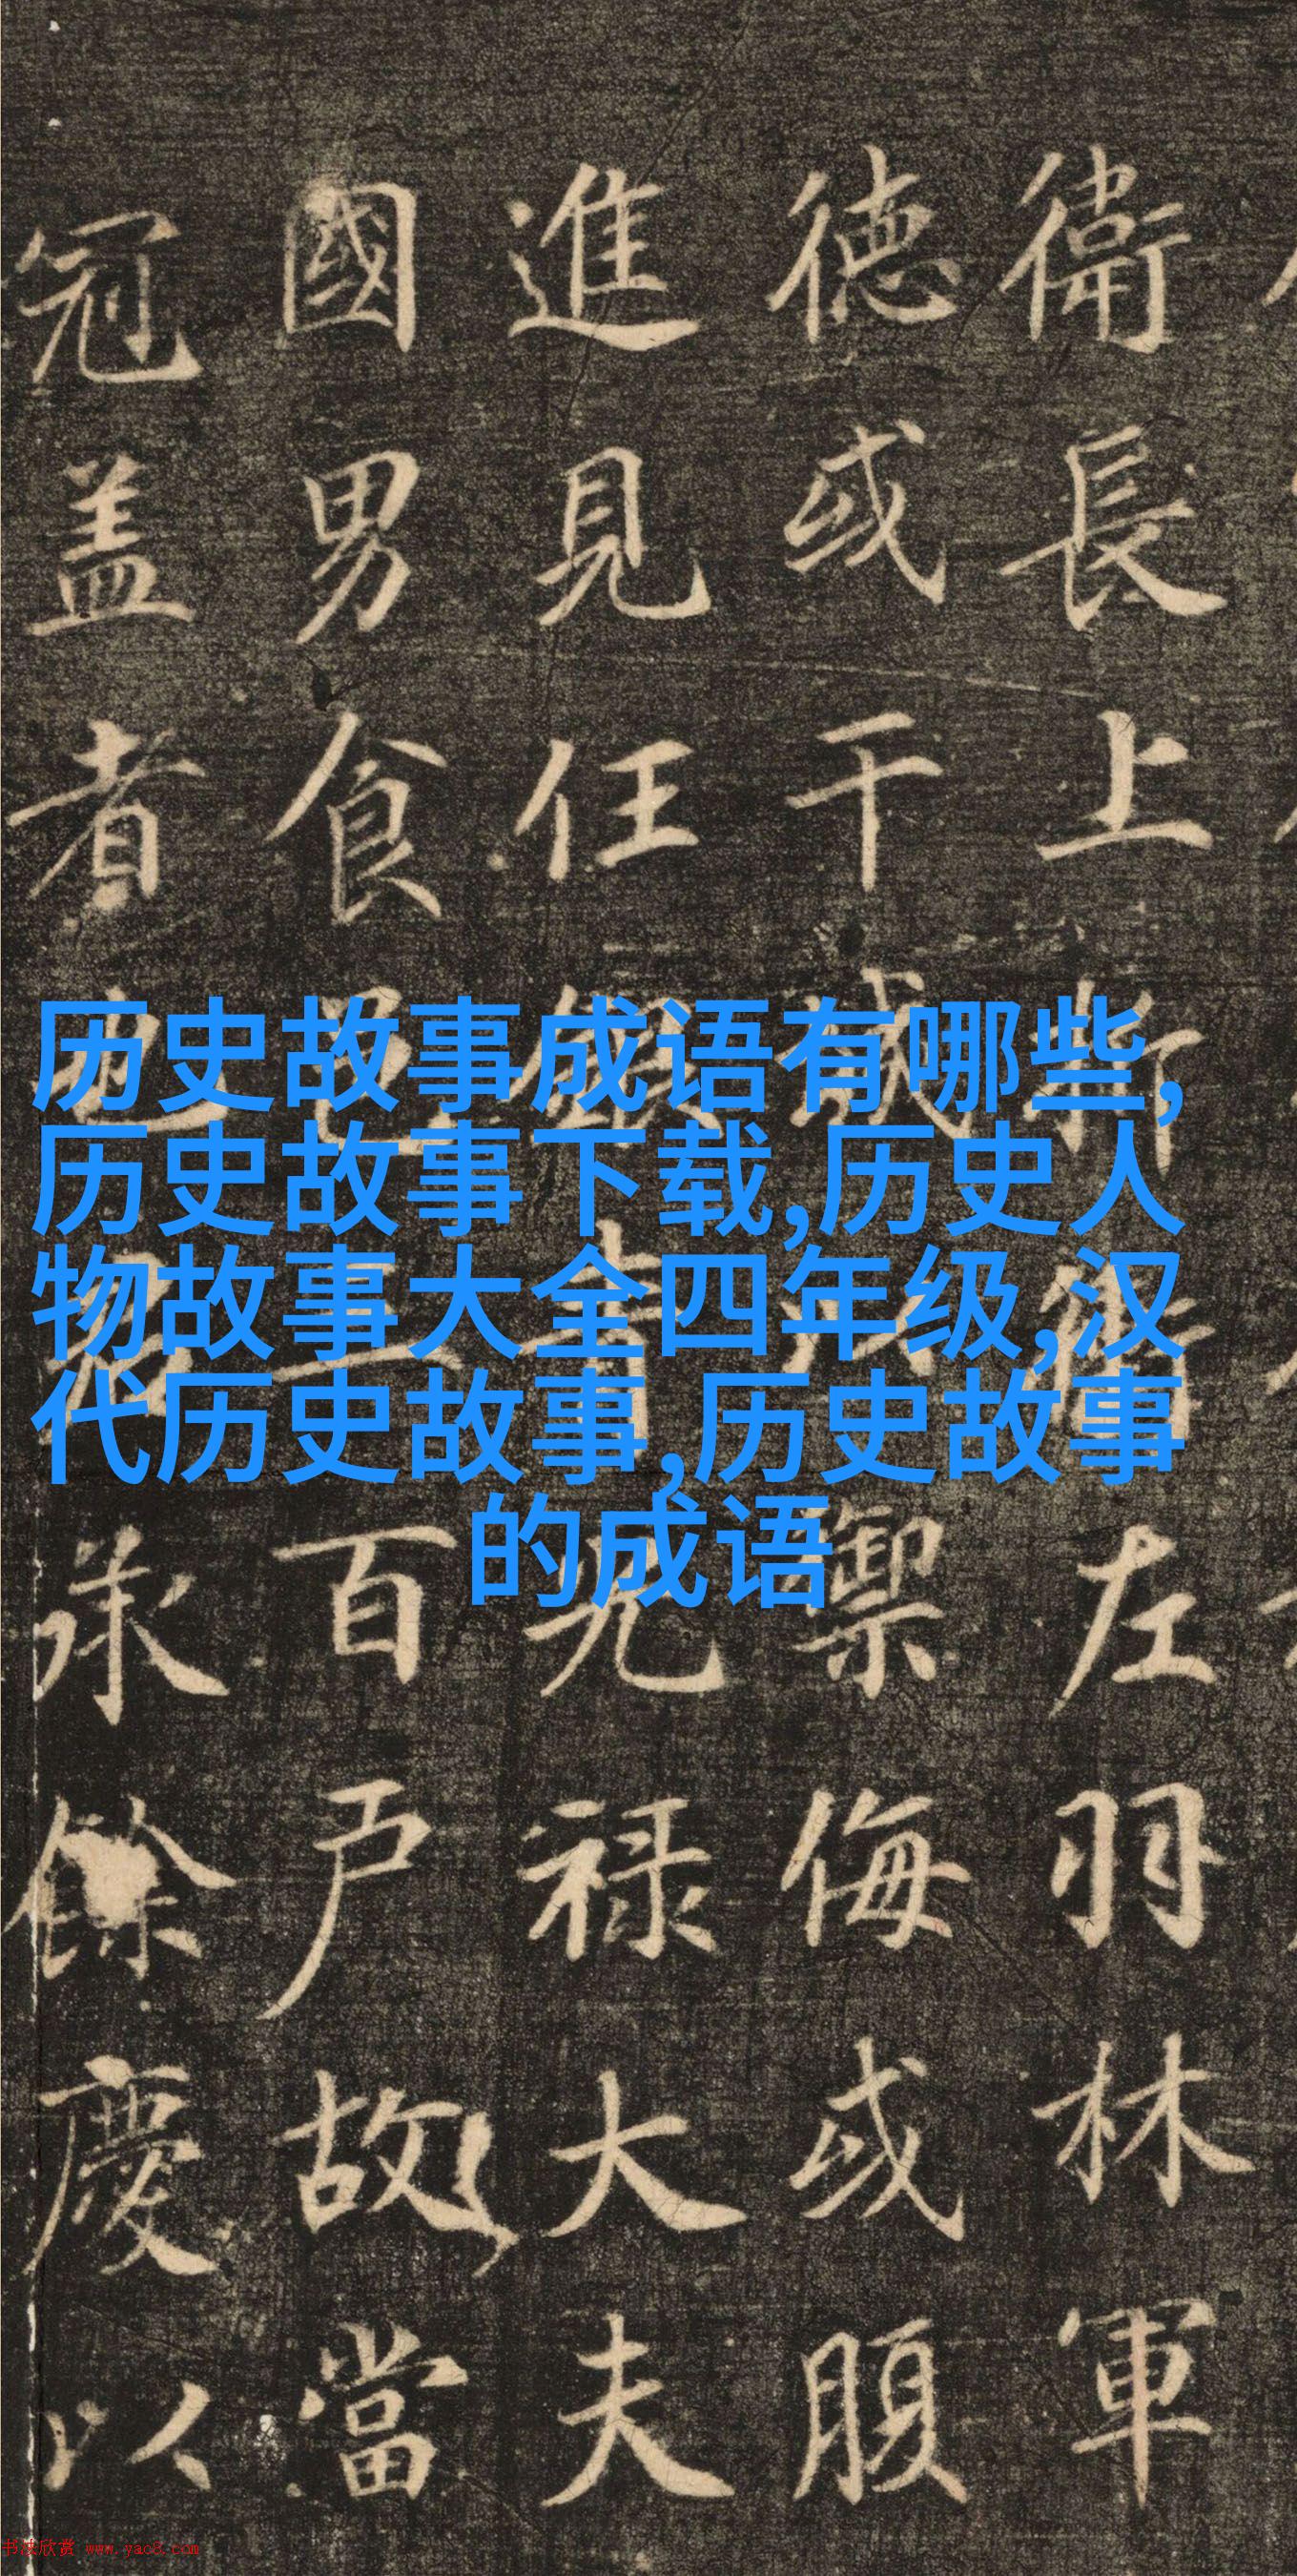 衛長上 左羽林軍
德或干城 禦侮或腹
進見任 光禄大夫
國男食邑一百户故當
冠盖者也 承餘慶以
历史故事成语有哪些,
历史故事下载,历史人
物故事大全四年级,汉
代历史故事,历史故事
的成语
书法欣赏 www.yac8.com